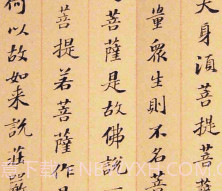 大身湏菩提菩
量眾生則不名菩
菩薩是故佛說
菩提若菩薩作是
何以故如来說莊嚴